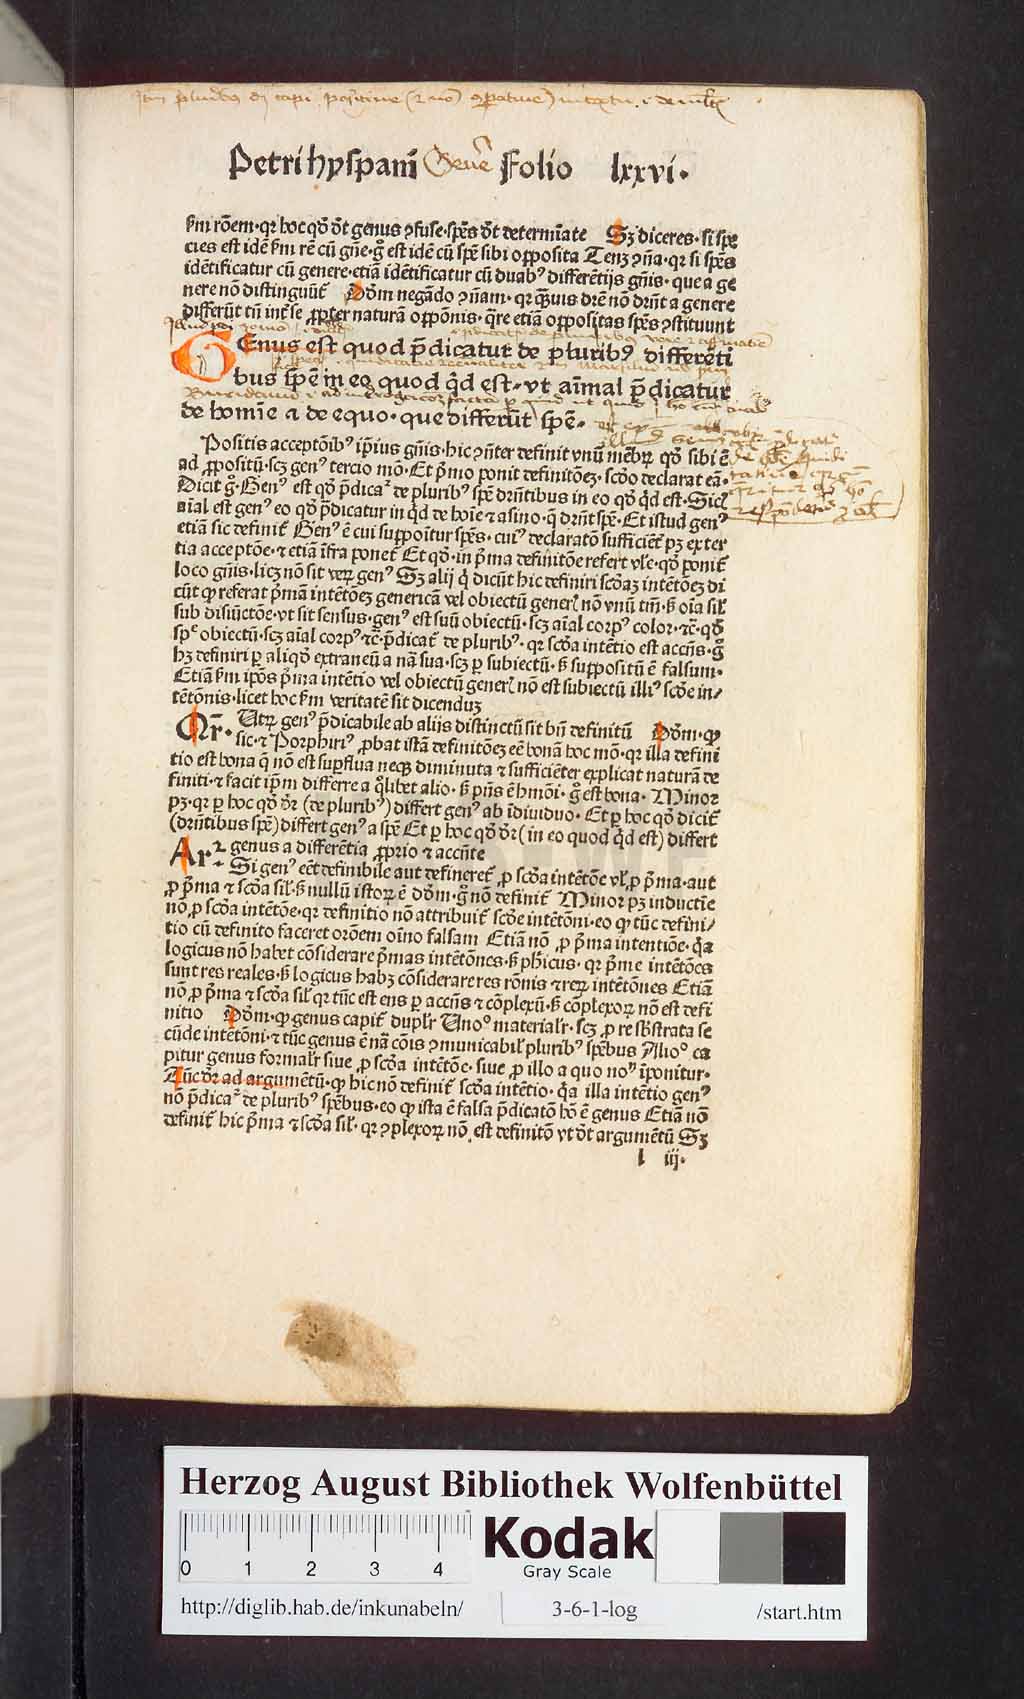 Petri hyspani Folio lxxvi.
ẜm rōem·qꝛ hoc qď ďt genus ꝯfuse·spēs ďt determīate Sꝫ diceres·si spe
cies est idē ẜm rē cū gn̄e·gͦ est idē cū spē sibi opposita Tenꝫ ꝯn̄a·qꝛ si spēs
idētificatur cū genere·etiā idētificatur cū duabꝰ differētijs gn̄is·que a ge
nere nō distinguūt̄ Dōm negādo ꝯn̄am·qꝛ q̄uis dr̄ie nō drn̄t a genere
differūt tn̄ int̄ se ꝓpter naturā opp̄onis·q̄re etiā oppositas spēs ꝯstituunt
GEnus est quod p̄dicatur de pluribꝰ differēti
bus spē in eo quod q́d est·vt aīmal p̄dicatur
de homīe ⁊ de equo·que differūt spē·
Positis acceptōibꝰ ip̄ius gn̄is·hic ꝯn̄ter definit vnū mēbꝝ qď sibi ē
ad ꝓpositū·scꝫ genꝰ tercio mō·Et p̄mo ponit definitōeꝫ·scďo declarat eā·
Dicit gͦ·Genꝰ est qď p̄dicaᷓ de pluribꝰ spē drn̄tibus in eo qď q́d est·Sicᷓ
aīal est genꝰ eo qď p̄dicatur in q́d de hoīe ⁊ asino·q̄ drn̄t spē·Et istud genꝰ
etiā sic definit̄ Genꝰ ē cui suppoītur spēs·cuiꝰ declaratō sufficiēt̄ pꝫ exter
tia acceptōe·⁊ etiā īfra ponet̄ Et qď·in p̄ma definitōe refert vl̄e·qď ponit̄
loco gn̄is·licꝫ nō sit veꝝ genꝰ Sꝫ alij q́ dicūt hic definiri scďaꝫ intētōeꝫ di
cūt ꝙ referat p̄mā intētōeꝫ genericā vel obiectū generl̄ nō vnū tm̄·ẜ oīa sil̄
sub disiūctōe·vt sit sensus·genꝰ est suū obiectū·scꝫ aīal corpꝰ color·⁊c̄·qď
spē obiectū·scꝫ aīal corpꝰ·⁊c̄·p̄dicat̄ de pluribꝰ·qꝛ scďa intētio est accn̄s·gͦ
hꝫ definiri ꝑ aliqď extraneū a nā sua·scꝫ ꝑ subiectū·ẜ suppositū ē falsum·
Etiā ẜm ip̄os p̄ma intētio vel obiectū generl̄ nō est subiectū illiꝰ scďe in/
tētōnis·licet hoc ẜm veritatē sit dicenduꝫ
Qr̄· Utꝝ genꝰ p̄dicabile ab alijs distinctū sit bn̄ definitū Dōm·ꝙ
sic·⁊ Porphiriꝰ ꝓbat istā definitōeꝫ eē bonā hoc mō·qꝛ illa defini
tio est bona q̄ nō est suꝑflua neqꝫ diminuta ⁊ sufficiēter explicat naturā de
finiti·⁊ facit ip̄m differre a q̄libet alio·ẜ pn̄s ē hmōi·gͦ est bona· Minor
pꝫ·qꝛ ꝑ hoc qď dr̄ (de pluribꝰ) differt genꝰ ab īdiuiduo·Et ꝑ hoc qď dicit̄
(drn̄tibus spē) differt genꝰ a spē Et ꝑ hoc qď dr̄ (in eo quod q́d est) differt
genus a differētia ꝓprio ⁊ accn̄te
Arꝛ· Si genꝰ eēt definibile aut definereť ꝓ scďa intētōe vl̄ ꝓ p̄ma·aut
ꝓ p̄ma ⁊ scďa sil̄·ẜ nullū istoꝝ ē dōm·gͦ nō definit̄ Minor pꝫ inductīe
nō ꝓ scďa intētōe·qꝛ definitio nō attribuit̄ scďe intētōni·eo ꝙ tūc defini/
tio cū definito faceret orōem oīno falsam Etiā nō ꝓ p̄ma intentiōe·q́a
logicus nō habet cōsiderare p̄mas intētōnes·ẜ ph̄icus·qꝛ p̄me intētōes
sunt res reales·ẜ logicus habꝫ cōsiderare res rōnis ⁊ reꝝ intētōnes Etiā
nō ꝓ p̄ma ⁊ scďa sil̄·qꝛ tūc est ens ꝑ accn̄s ⁊ cōplexū·ẜ cōplexoꝝ nō est defi
nitio Dōm·ꝙ genus capit̄ duplr̄ Unoº materialr̄·scꝫ ꝓ re sb̄strata se
cūde intētōni·⁊ tūc genus ē nā cōis ꝯmunicabil̄ pluribꝰ spēbus Alioº ca
pitur genus formalr̄ siue ꝓ scďa intētōe·siue ꝓ illo a quo noᵐ īponitur·
Tūc dr̄ ad argumētū·ꝙ hic nō definit̄ scďa intētio·q́a illa intētio genꝰ
nō p̄dicaᷓ de pluribꝰ spēbus·eo ꝙ ista ē falsa p̄dicatō hō ē genus Etiā nō
definit̄ hic p̄ma ⁊ scďa sil̄·qꝛ ꝯplexoꝝ nō est definitō vt ďt argumētū Sꝫ
l iij·
Herzog August Bibliothek Wolfenbüttel
0 1 2 3 4
Kodak
Gray Scale
http://diglib.hab.de/inkunabeln/ 3-6-1-log /start.htm